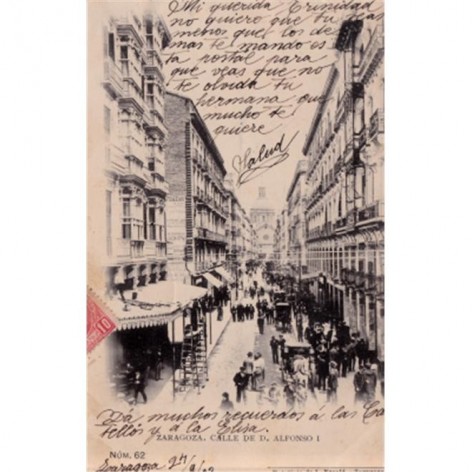 Mi querida Trinidad
no quiero que tu seas
menos que los de
mas te mando es
ta postal para
que veas que no
te olvida tu
hermana que
mucho te
quiere
Salud
10
Da muchos recuerdos á las Ca
tellós y á la Elisa.
ZARAGOZA. CALLE DE D. ALFONSO I
NÚM. 62
Zaragoza 27